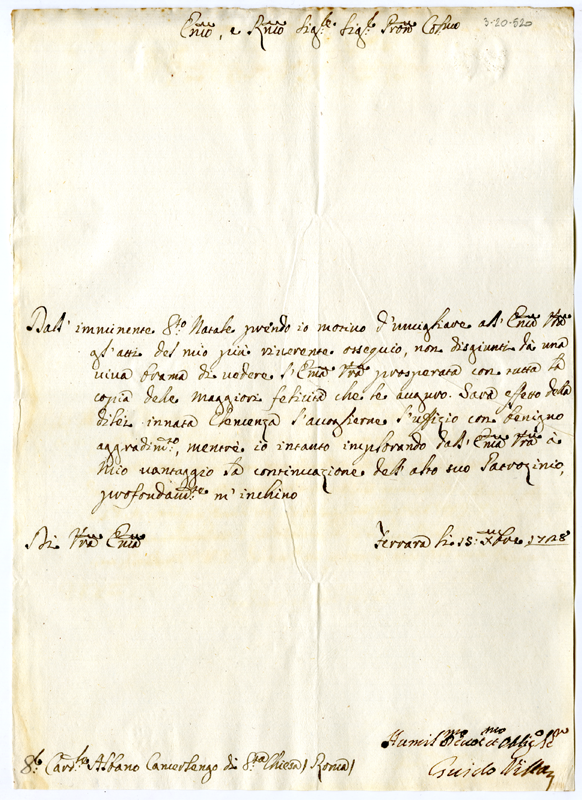 Emo, e Rmo Sigre Sigr Pron Colmo
3-20-520
Dall' imminente Sto Natale prendo io motivo d'umigliare all' Emza Vra
gl'atti del mio più riverente ossequio, non disgiunti da una
viva brama di vedere l'Emza Vra prosperata con tutta la
copia dele maggiori felicità che le auguro. Sarà effetto della
di lei innata Clemenza l'accoglierne l'uffizio con benigno
aggradimto, mentre io intanto implorando dall' Emza Vra à
mio vantaggio la continuazione dell' alto suo Patrocinio,
profondamte m' inchino
Di Vra Emza
Ferrara li 15. Xbre 1728
Humilmo Devmo et Obligo Sre
Sr Cardle Albano Camerlengo di Sta Chiesa / Roma /
Guido Villa